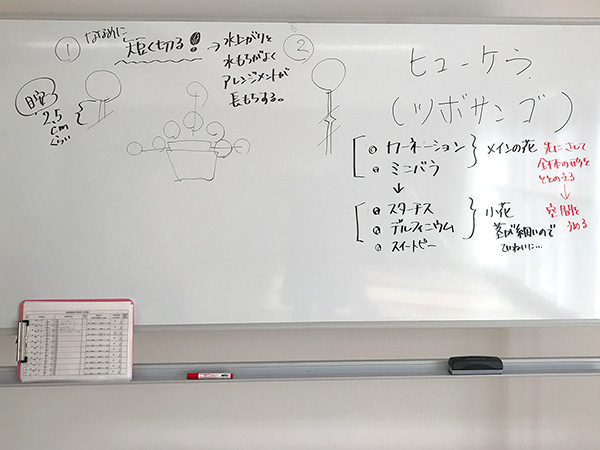 ①
ななめに
短く切る!
→ 水上がりと
水もちがよく
アレンジメントが
長もちする。
2.5
cm
くらい
②
ヒューケラ
(ツボサンゴ)
カーネーション
ミニバラ
メインの花
先にさして
全体の形を
ととのえる
↓
↓
スターチス
デルフィニウム
スイートピー
小花
茎が細いので
ていねいに…
空間を
うめる